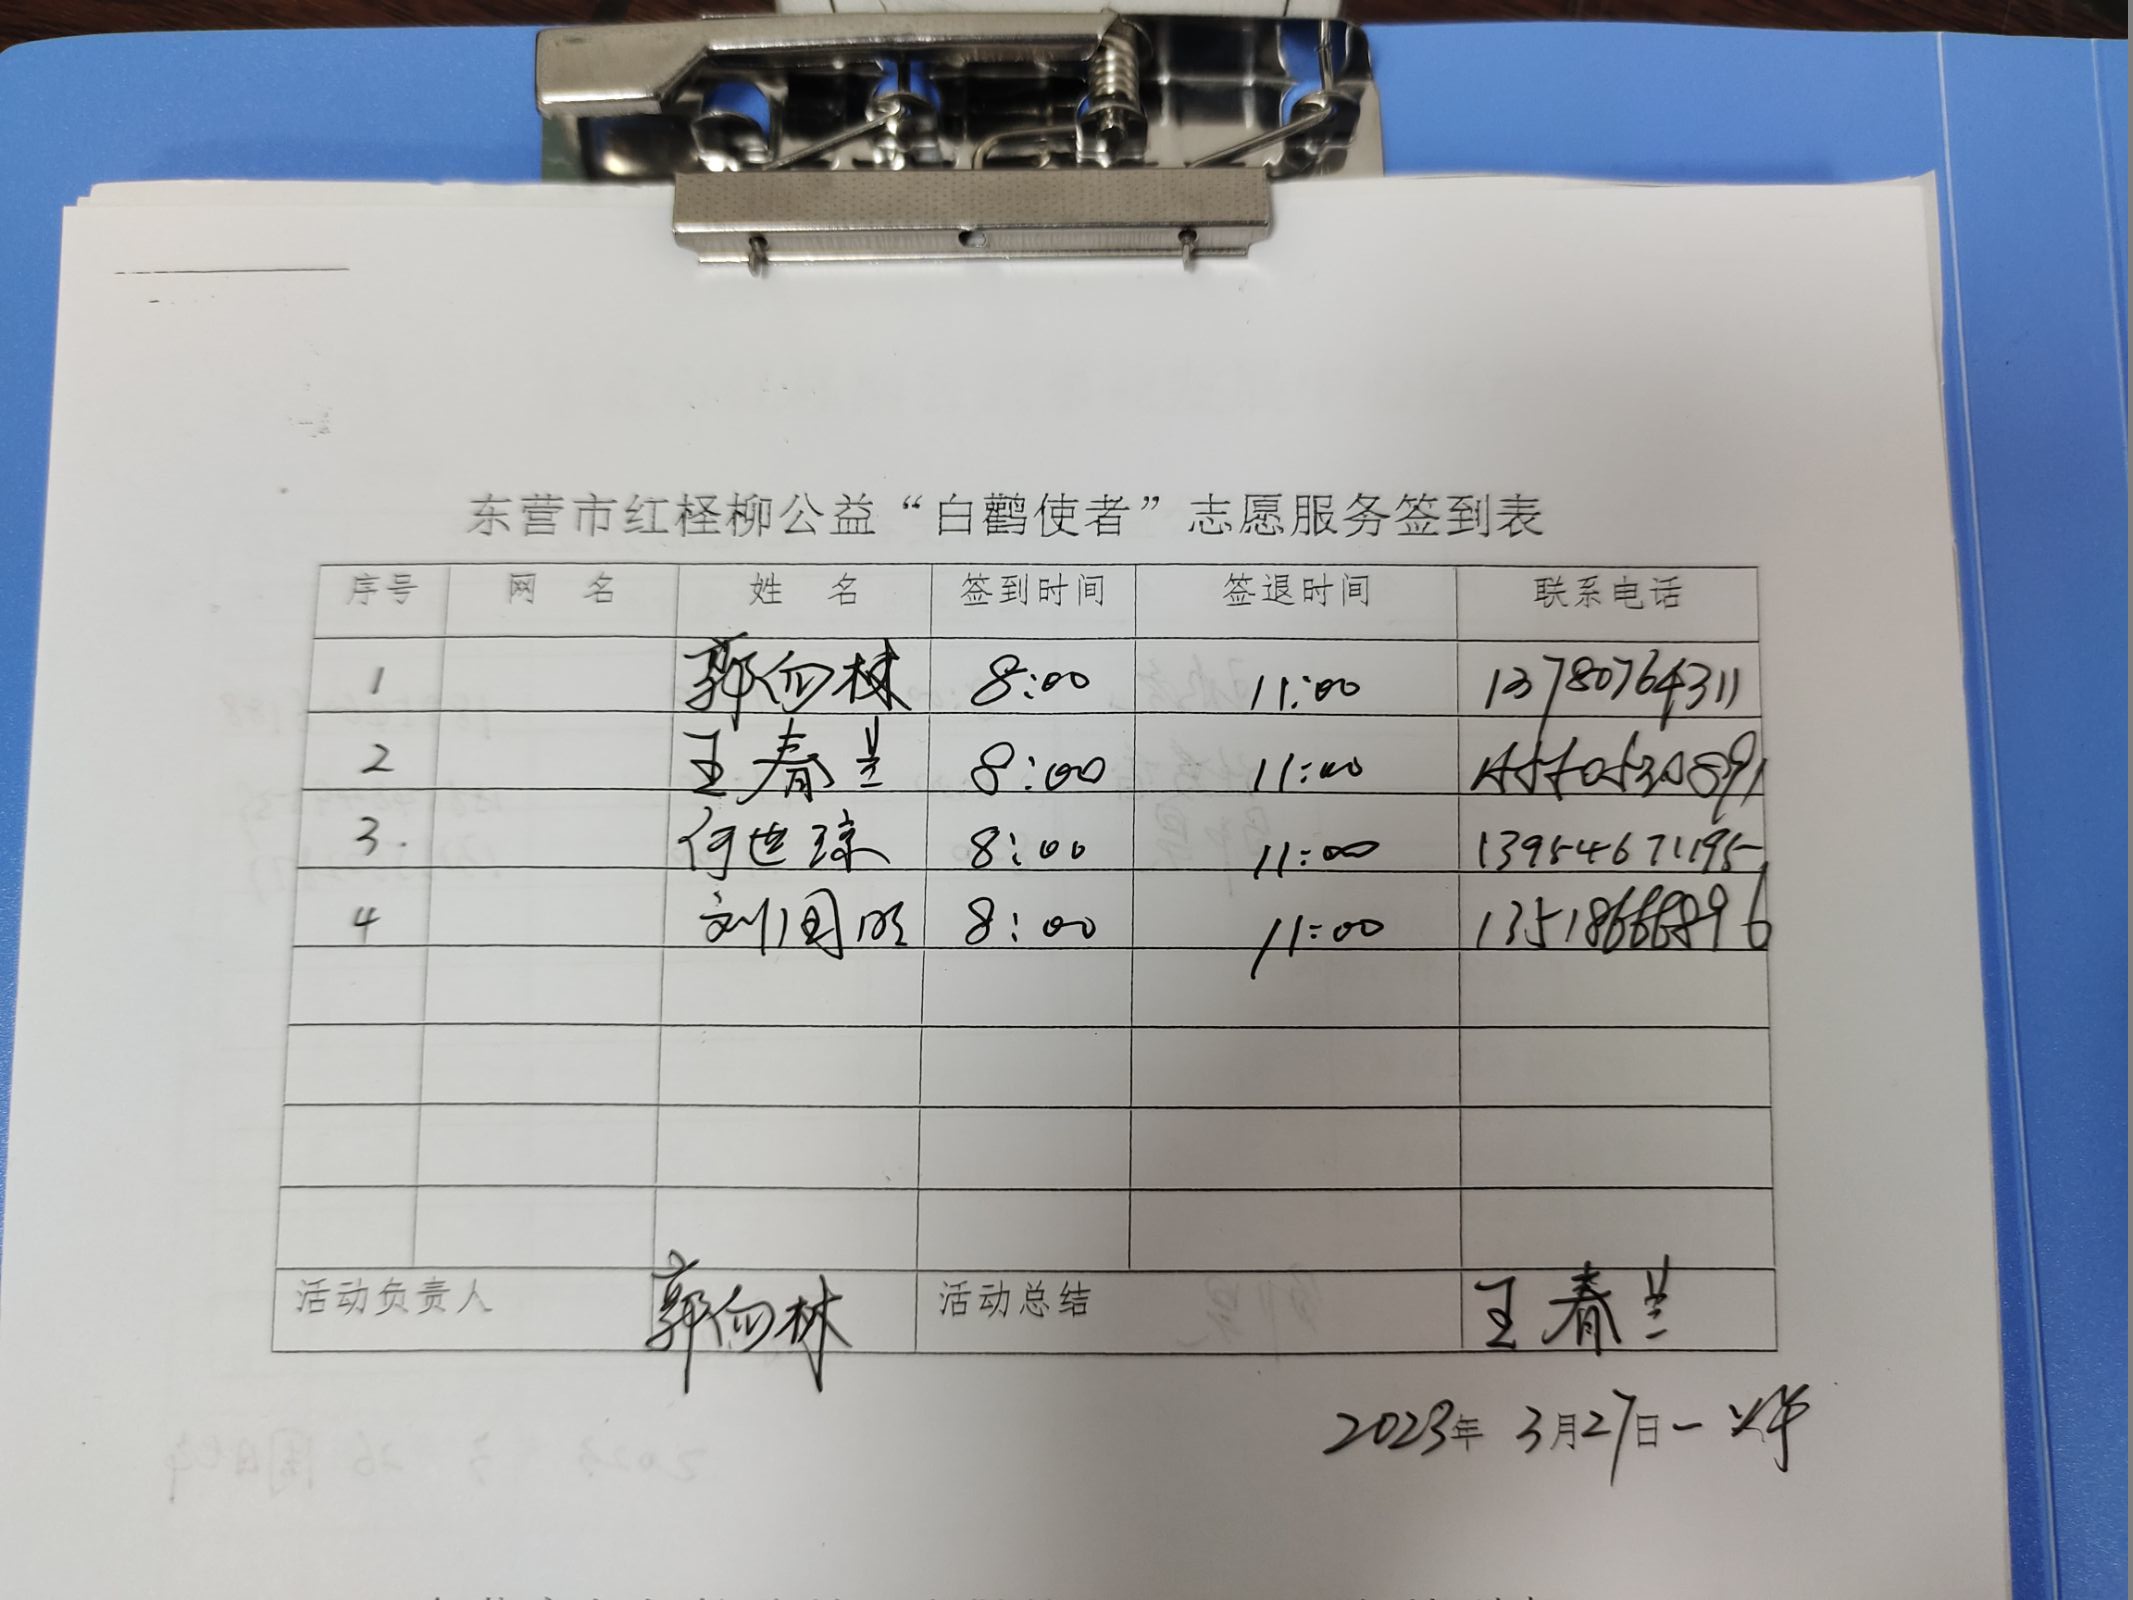 东营市红柽柳公益“白鹳使者”志愿服务签到表
序号 网 名 姓 名 签到时间 签退时间 联系电话
1 郭向林 8:00 11:00 13780764311
2 王春兰 8:00 11:00
3. 何世琼 8:00 11:00 13954671195
4 刘国明 8:00 11:00 13518666896
活动负责人 郭向林 活动总结 王春兰
2023年 3月27日一